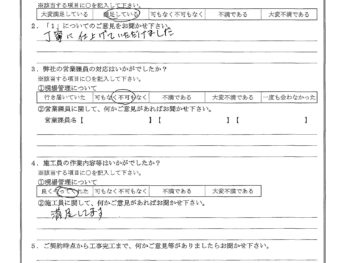 ※該当する項目に○を記入して下さい。
大変満足している 満足している 可もなく不可もなく 不満である 大変不満である
2．「1」についてのご意見をお聞かせ下さい。
丁寧に仕上げていただけました
3．弊社の営業職員の対応はいかがでしたか？
※該当する項目に○を記入して下さい。
①現場管理について
行き届いていた 可もなく不可もなく 不満である 大変不満である 一度も会わなかった
②営業職員に関して、何かご意見があればお聞かせ下さい。
営業課員名【 】【 】【 】
4．施工員の作業内容等はいかがでしたか？
※該当する項目に○を記入して下さい。
①現場管理について
良くやってくれた 可もなく不可もなく 不満である 大変不満である
②施工員に関して、何かご意見があればお聞かせ下さい。
満足してます
5．ご契約時点から工事完工まで、何かご意見等がありましたらお聞かせ下さい。